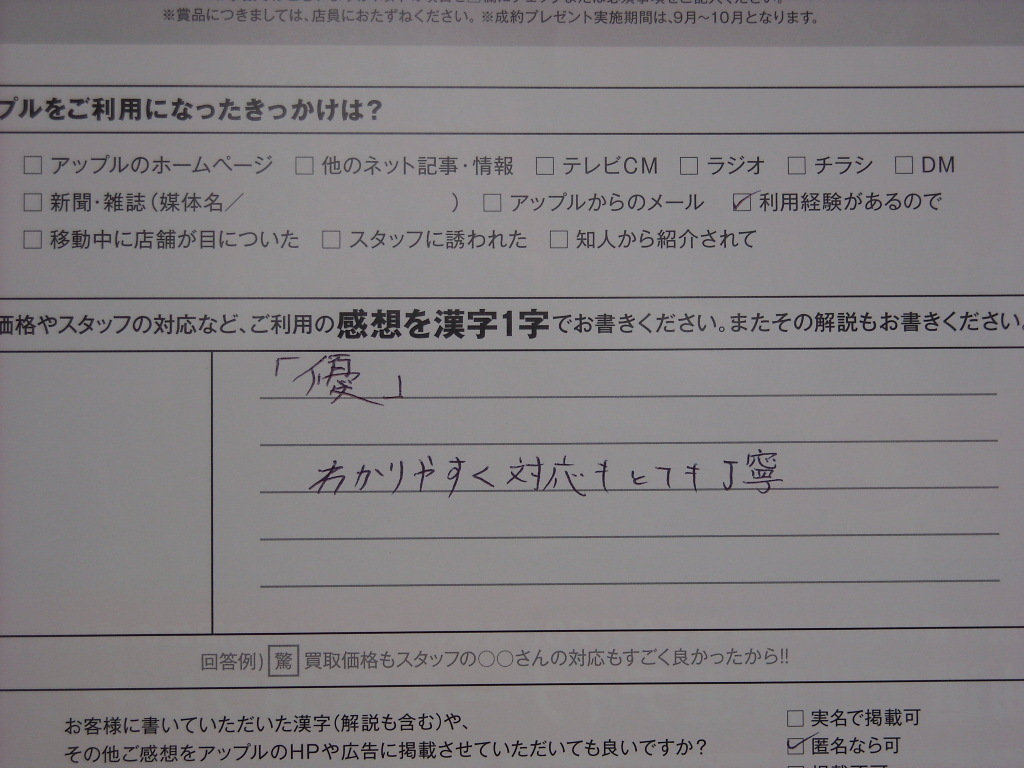 ※賞品につきましては、店員におたずねください。※成約プレゼント実施期間は、9月〜10月となります。
プルをご利用になったきっかけは?
□ アップルのホームページ □ 他のネット記事・情報 □ テレビCM □ ラジオ □ チラシ □ DM
□ 新聞・雑誌(媒体名／ ) □ アップルからのメール ☑ 利用経験があるので
□ 移動中に店舗が目についた □ スタッフに誘われた □ 知人から紹介されて
価格やスタッフの対応など、ご利用の感想を漢字1字でお書きください。またその解説もお書きください。
「優」
わかりやすく対応もとても丁寧
回答例) 驚 買取価格もスタッフの〇〇さんの対応もすごく良かったから!!
お客様に書いていただいた漢字(解説も含む)や、
その他ご感想をアップルのHPや広告に掲載させていただいても良いですか?
□ 実名で掲載可
☑ 匿名なら可